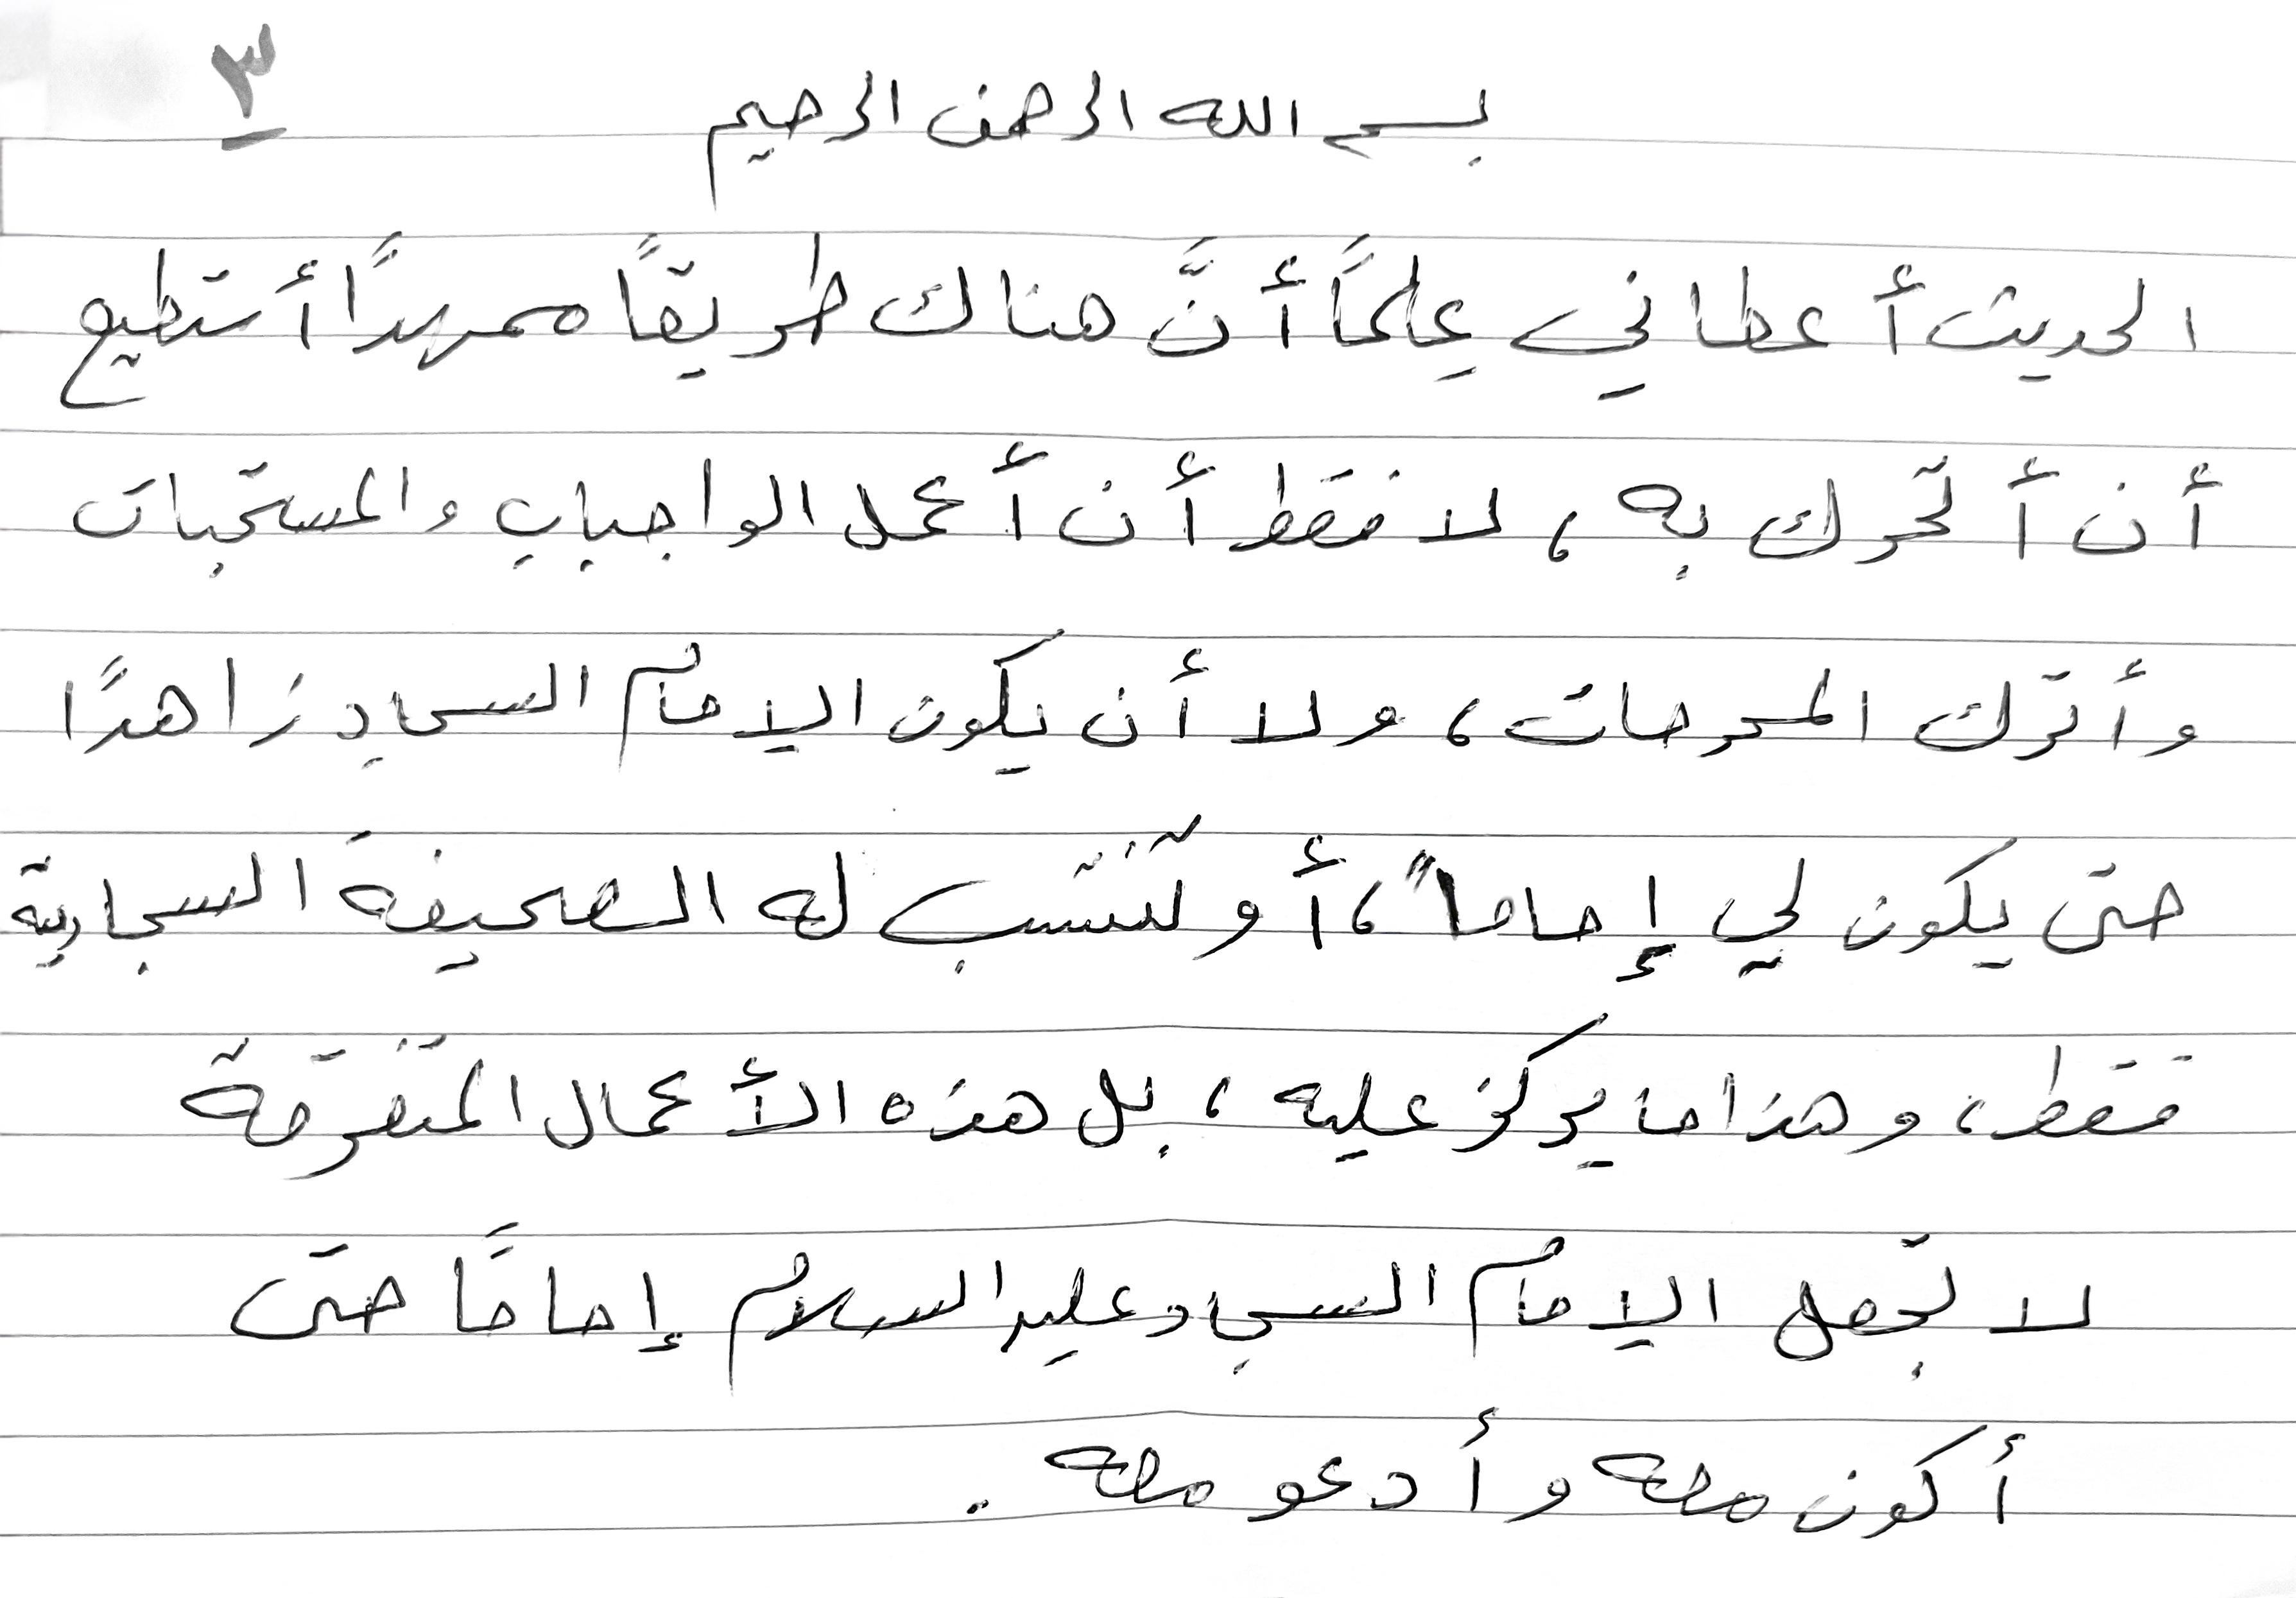 ٣
بسم الله الرحمن الرحيم
الحديث أعطاني عِلمًا أنَّ هناك طريقًا ممهدًا أستطيع
أن أتحرك به، لا فقط أن أعمل الواجبات والمستحبات
وأترك المحرمات، ولا أن يكون الإمام السجاد زاهدًا
حتى يكون لي إماماً، أو تنتسب له الصحيفة السجادية
فقط، وهذا ما يركز عليه، بل هذه الأعمال المتفرقة
لا تجعل الإمام السجاد عليه السلام إمامًا حتى
أكون معه وأدعو معه.